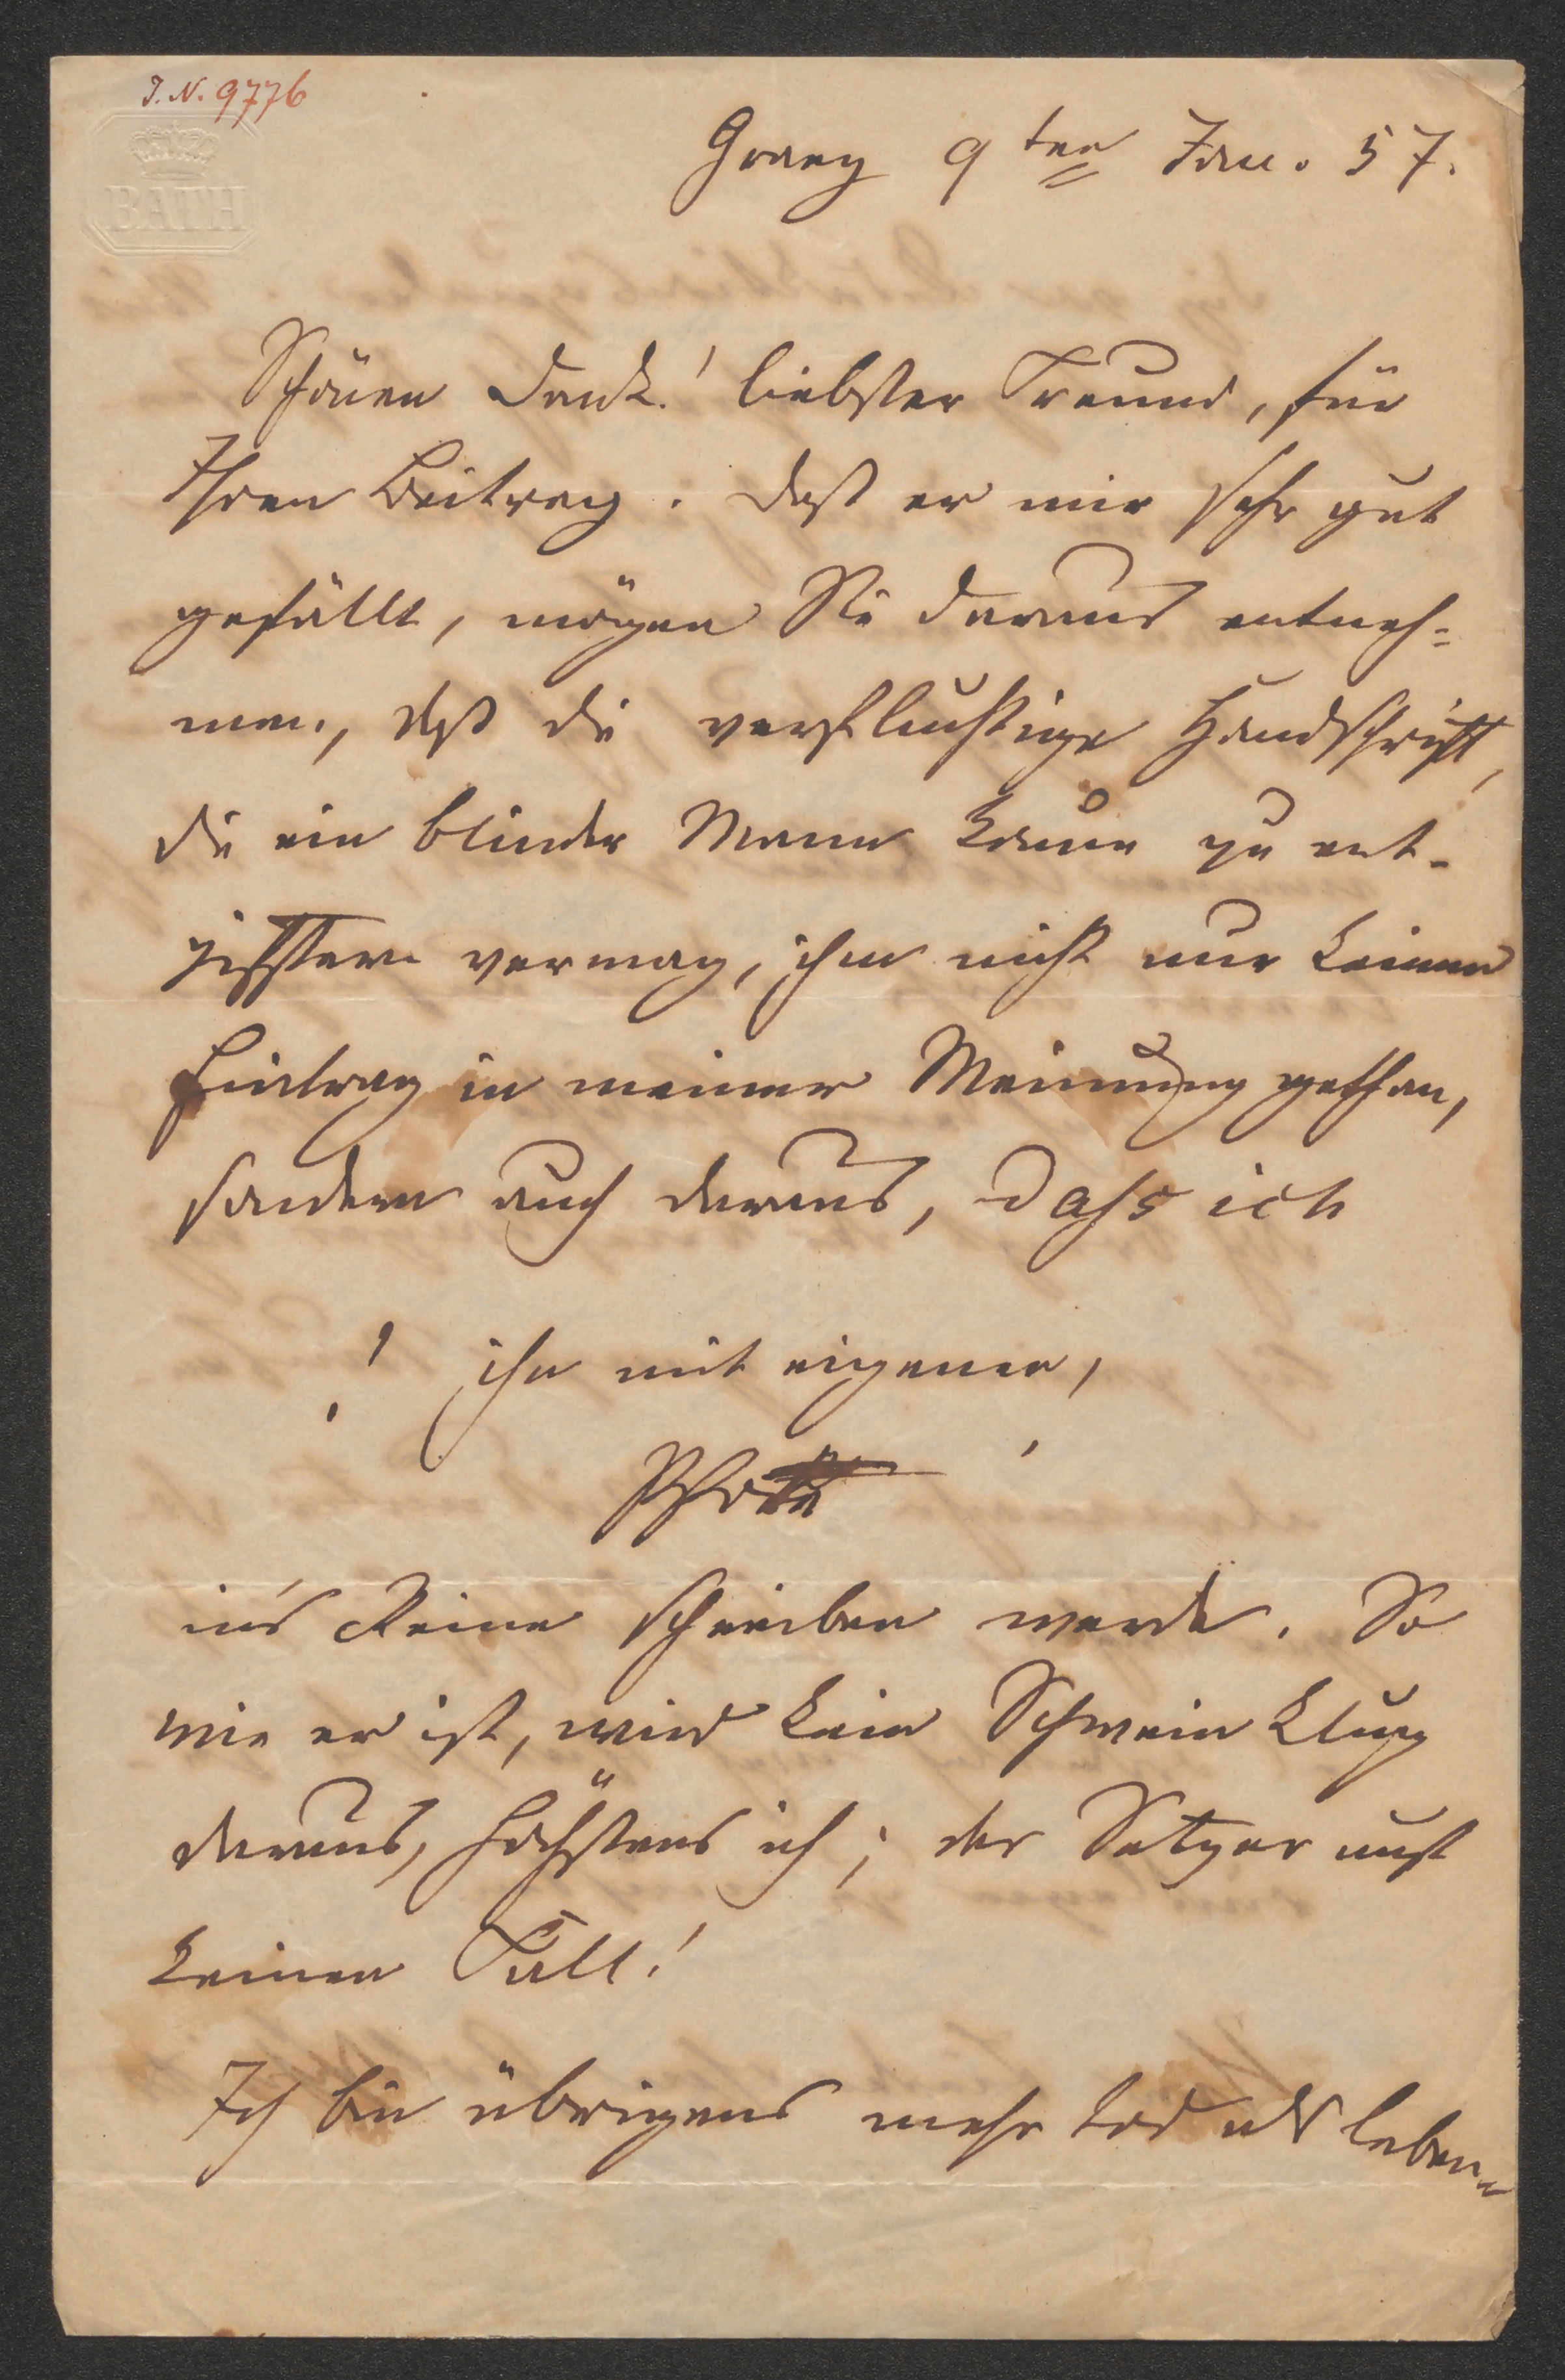 J. N. 9776
BATH
Graz 9ten Jan. 57.
Schönen Dank! liebster Freund, für
Ihren Beitrag. Daß er mir sehr gut
gefällt, mögen Sie daraus entneh=
men, daß die verfluchtige Handschrift,
die ein blinder Mann kaum zu ent-
ziffern vermag, ihm nicht nur keinen
Eintrag in meiner Meinung gethan,
sondern auch daraus, dass ich
! ihn mit eigener,
Pfote !
in's Reine schreiben werde. So
wie er ist, wird kein Schwein klug
daraus, höchstens ich; der Setzer auf
keinen Fall!
Ich bin übrigens mehr tod als leben=